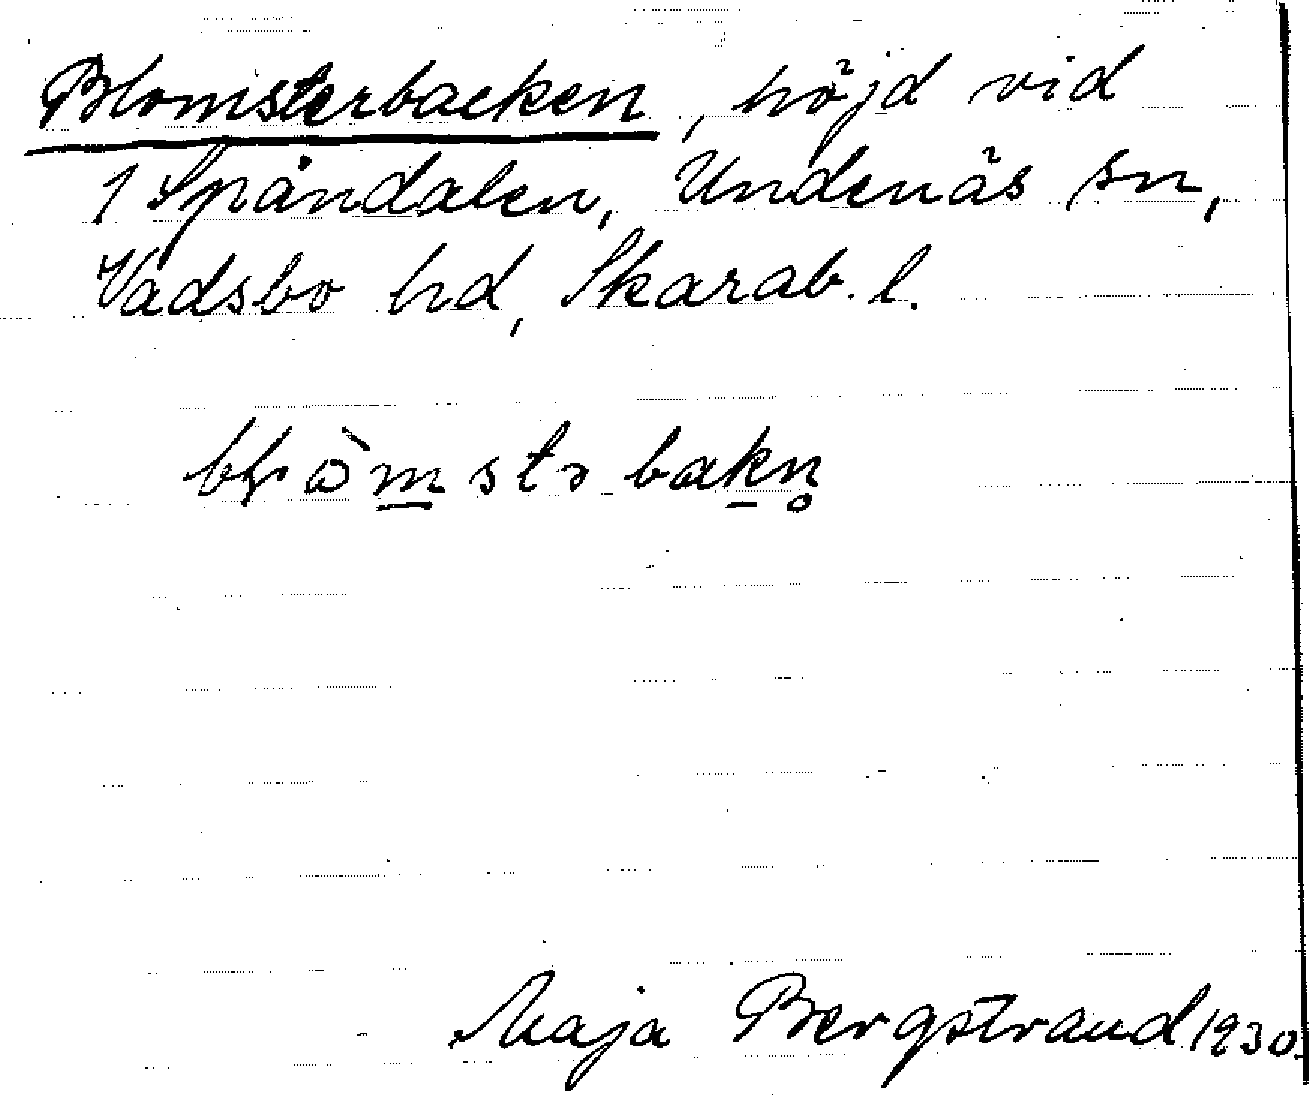 Blomsterbacken, höjd vid
1 Spåndalen, Undenäs sn,
Vadsbo hd, Skarab. l.
Maja Bergstrand 1930.